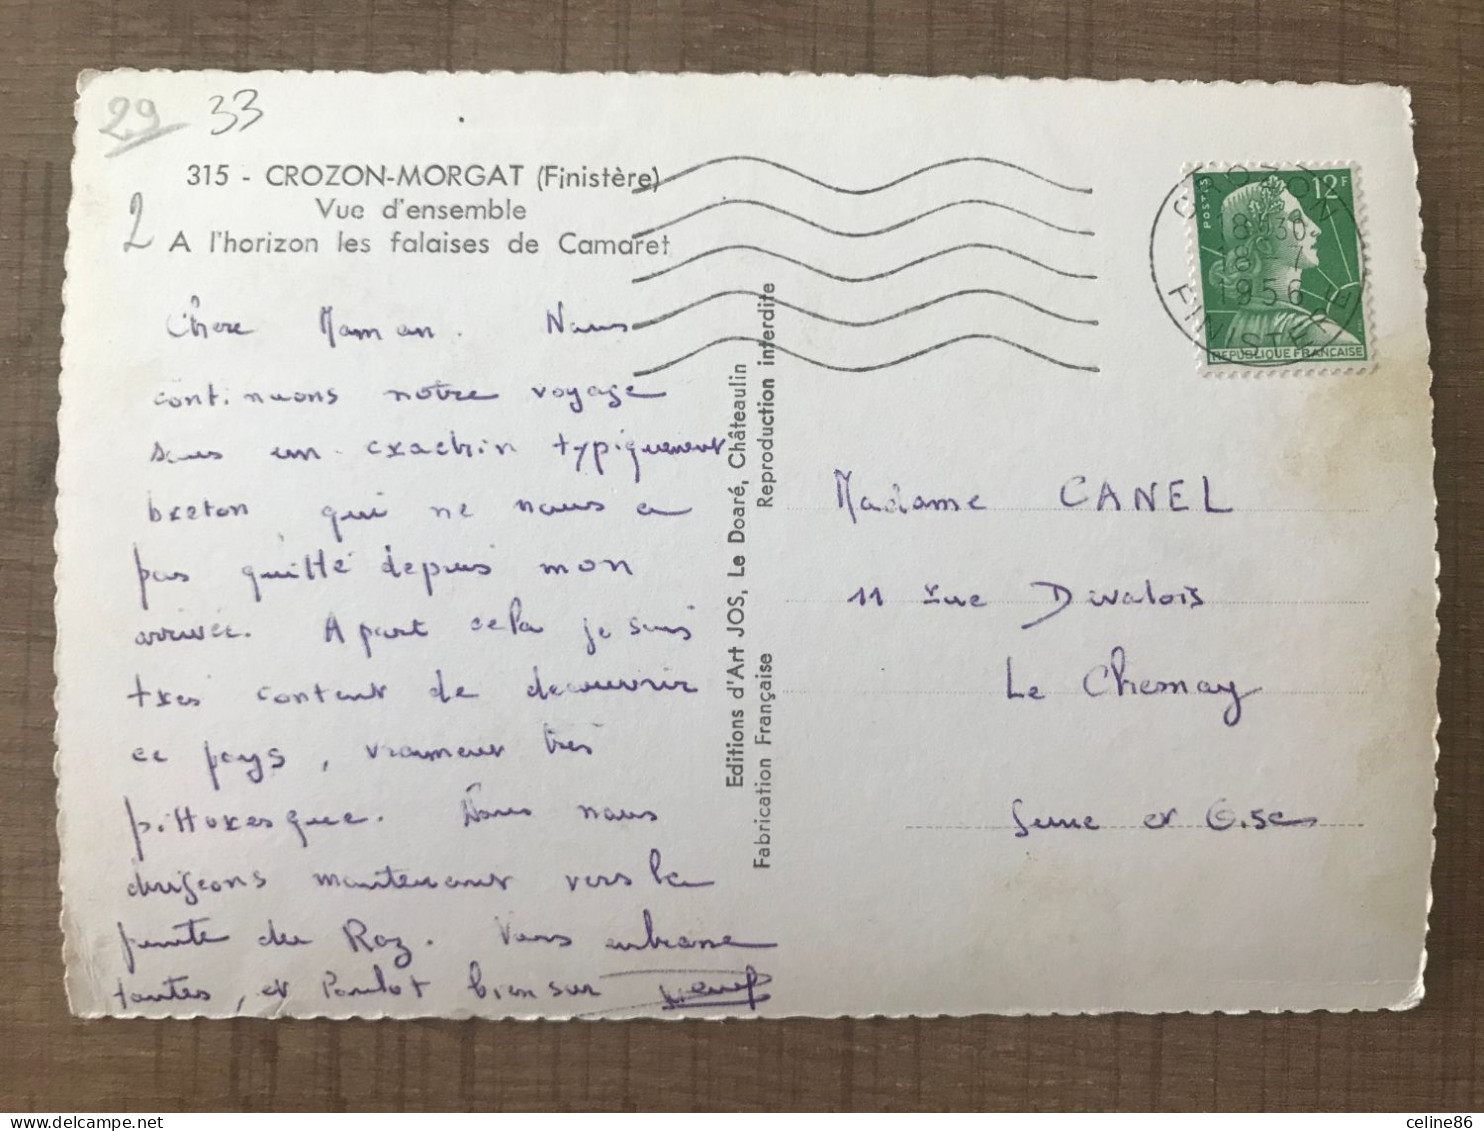 29 33
315 - CROZON-MORGAT (Finistère)
Vue d'ensemble
2 A l'horizon les falaises de Camaret
Chere Maman. Nous
continuons notre voyage
sous un crachin typiquement
breton, qui ne nous a
pas quitté depuis mon
arrivée. A part cela je suis
très content de decouvrir
ce pays, vraiment très
pittoresque. Nous nous
dirigeons maintenant vers la
pointe du Raz. Vous embrasse
toutes, et Poulot bien sur
Editions d'Art JOS, Le Doaré, Châteaulin
Fabrication Française Reproduction interdite
CROZON
18H30
1956
FINISTERE
POSTES 12F
REPUBLIQUE FRANÇAISE
Madame CANEL
11 rue Divalois
Le Chesnay
Seine et Oise
celine86